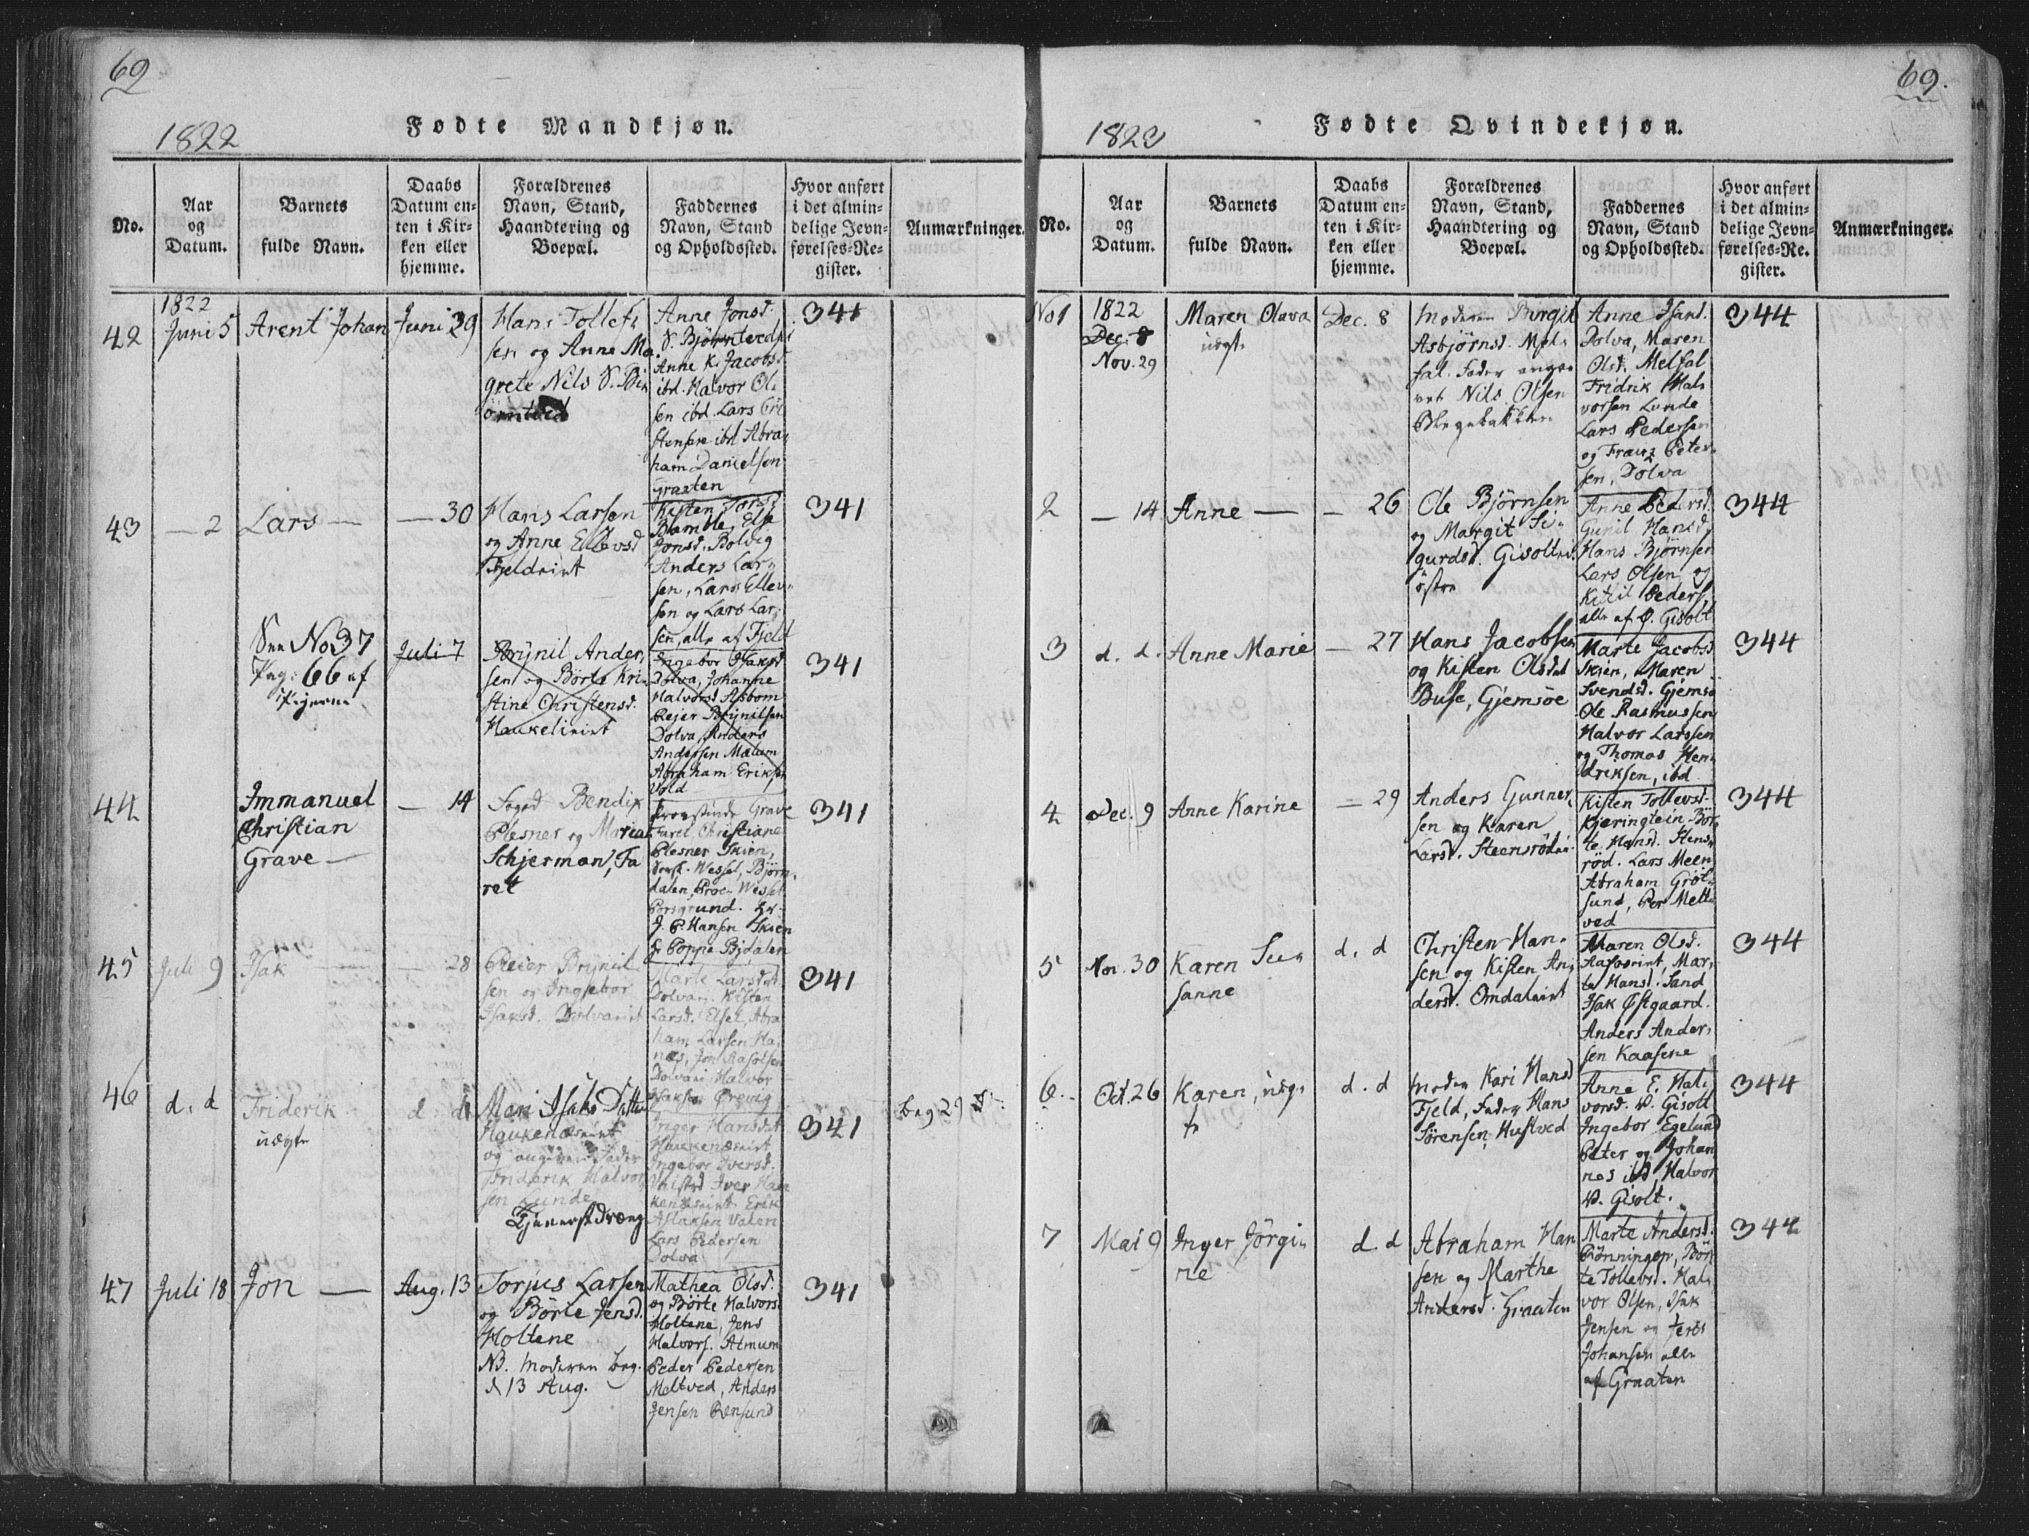 69
1822
Fødte Mandkjøn.
No.
Aar
og
Datum.
Barnets
fulde Navn.
Daabs
Datum en-
ten i Kir-
ken eller
hjemme.
Forældrenes
Navn, Stand,
Haandtering og
Boepæl.
Faddernes
Navn, Stand
og Opholdssted.
Hvor anført
i det almin-
delige Jevn-
førelses-Re-
gister.
Anmærkninger.
1822
42 Juni 5 Arent Johan Juni 29
Hans Tollef
sen og Anne Ma
grete Nils D.
Anne Jonsd.
Anne K. Jacobsd.
ibd. Halvor Ol
sen ibd. Lars
ibd. Abra
ham Danielsen
Graaten
341
43 — 2 Lars — — 30
Hans Larsen
og Anne Ellevsd
Kisten
Bamble, Else
Jonsd. Bolvig
Anders Lar
sen, Lars Ellev
sen og Lars Lar
sen, alle af Fjeld
341
See No 37
Pag: 66 af
Pigerne
Juli 7
Brynil Ander
sen og Börte Kri
stine Christensd.
Ingebor Isaksd
Dolva, Johanne
Halvorsd Asbom
Peter Brynilsen
Dolva, Anders
Andersen Mælum
Abraham Eriksen
Vold
341
44
Immanuel
Christian
Grave —
— 14
Foged Bendix
Plesner og Maria
Schjerman, Fa
ret
Provstinde Grave
Faret Christiane
Plesner Skien,
Wessel, Björn
dalen, Proc. Wessel
Porsgrund. Hr.
J. P. Hansen Skien
Hr Poppe Bjdalen
341
45 Juli 9 Isak — 28
Peter Brynil
sen og Ingebor
Isaksd. Dolvaeiet
Marte Larsdat
Dolvan. Kisten
Larsd. Elset, Abra
ham Larsen Ha
næs, Jon
Dolvan Halvor
Isaksen Ørevig
341
46 d. d Friderik
uægte
d. d
Mari Isaks Datter
Haukenæseiet
og angiven Fader
Friderik Halvor
sen Lunde
Tjenestdreng
Inger Hansdat
Haukenæseiet
Ingebor Iversd.
Iver Hau
kenæseiet Erik
Aslaksen Valen
Lars Pedersen
Dolva
341
Pag 29
47 Juli 18 Jon — Aug. 13
Torjus Larsen
og Börte Jensd.
Holtene
NB. Moderen beg.
d 13 Aug.
Mathea Olsd.
og Börte Halvors
Holtene, Jens
Halvors. Atmum
Peder Pedersen
Meltved, Anders
Jensen Bensund
341
69.
1823
Fødte Qvindekjøn.
No.
Aar
og
Datum.
Barnets
fulde Navn.
Daabs
Datum en-
ten i Kir-
ken eller
hjemme.
Forældrenes
Navn, Stand,
Haandtering og
Boepæl.
Faddernes
Navn, Stand
og Opholdssted.
Hvor anført
i det almin-
delige Jevn-
førelses-Re-
gister.
Anmærkninger.
No 1
1822
Dec. 8
Nov. 29
Maren Olava
uægte
Dec. 8
Moderen Birgit
Asbjørnsd. Mel
fal. Fader angi
vet Nils Olsen
Blegebakken
Anne Isaksd.
Dolva, Maren
Olsd. Melfal
Fridrik Hal
vorsen Lunde
Lars Pedersen
og Frans Peter
sen, Dolva
344
2 — 14 Anne — — 26
Ole Bjørnsen
og Margit Si
gurdsd. Gisolt
östre
Anne Pedersd.
Gunil Hansd.
Hans Bjørnsen
Lars Olsen og
Kitil Peders.
alle af Ø. Gisolt
344
3 d. d. Anne Marie — 27
Hans Jacobsen
og Kisten Olsdat
Buse, Gjemsöe
Marte Jacobsd
Skien, Maren
Svendsd. Gjemsö
Ole Rasmussen
Halvor Larssen
og Thomas Hen
driksen, ibd
344
4 Dec. 9 Anne Karine — 29
Anders Gunner
sen og Karen
Larsd. Steensrödei
Kisten Tollevsd.
Kjæringtein Bör
te Hansd. Stens
röd. Lars Meen
Abraham Gröt
sund, Per Melt
ved
344
5 Nov. 30 Karen Su
sanne
d. d
Christen Han
sen og Kisten An
dersd. Omdalseiet
Maren Olsd.
Aafosseiet, Mar
te Hansd. Sand
Isak Østgaard.
Anders Ander
sen Kaasene
344
6 Oct. 26 Karen, uæg
te
d. d
Moder Kari Hansd
Fjeld, Fader Hans
Sørensen Hustved
Anne E. Hal
vorsd. V. Gisolt
Ingebor Egelund
Peter og Johan
nes ibd Halvor
V. Gisolt.
344
7 Mai 9 Inger Jörgi
ne
d. d
Abraham Han
sen og Marthe
Andersd. Graaten
Marte Andersd.
Rönningen, Bör
te Tollevsd. Hal
vor Olsen, Isak
Jensen og Jens
Johansen alle
af Graaten
344